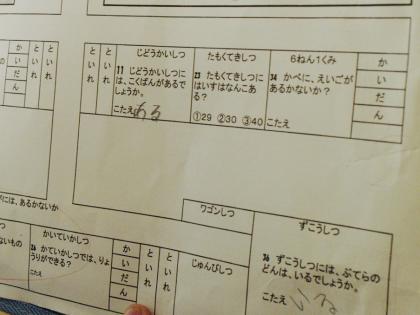 かいだん
といれ
といれ
じどうかいしつ
11 じどうかいしつに
は、こくばんがあるで
しょうか。
こたえ ある
たもくてきしつ
23 たもくてきしつに
はいすはなんこあ
る?
①29 ②30 ③40
6ねん1くみ
34 かべに、えいごが
あるかないか?
こたえ
かいだん
には、あるかないか
ワゴンしつ
ないもの
かていかしつ
26 かていかしつでは、りょ
うりができる?
こたえ
かいだん
といれ
といれ
じゅんびしつ
ずこうしつ
36 ずこうしつには、ぷてらの
どんは、いるでしょうか。
こたえ いる